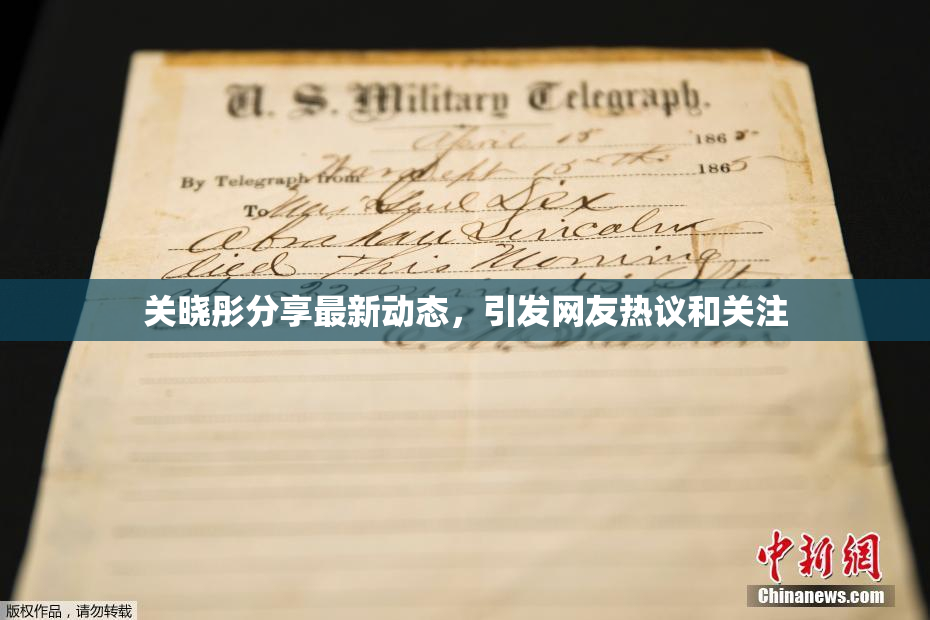 U. S. Military Telegraph.
April 15 1865
By Telegraph from War Dept 15th 1865
To Maj Genl Dix
Abraham Lincoln
died This Morning
at 22 minutes after
关晓彤分享最新动态，引发网友热议和关注
中新網
Chinanews.com
版权作品，请勿转载